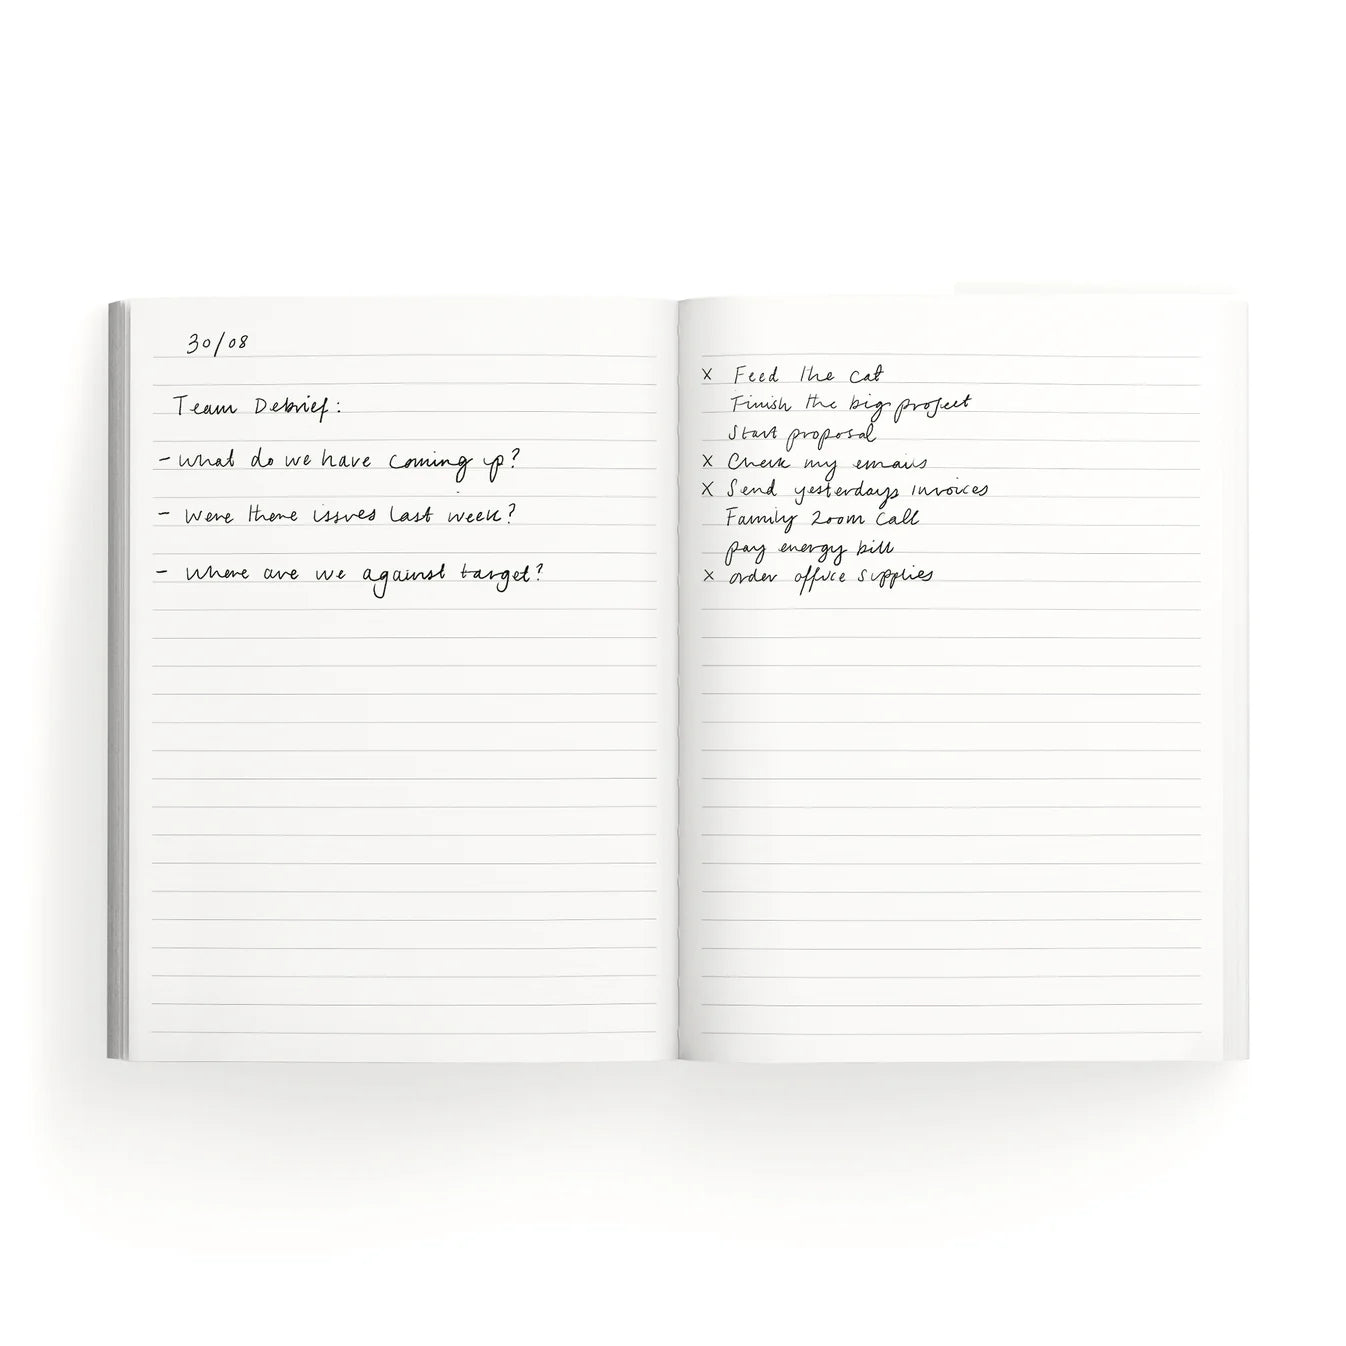 30/08
Team Debrief:
- what do we have coming up?
- Were there issues last week?
- Where are we against target?
x Feed the cat
Finish the big project
Start proposal
x Check my emails
x Send yesterdays invoices
Family Zoom Call
pay energy bill
x order office supplies